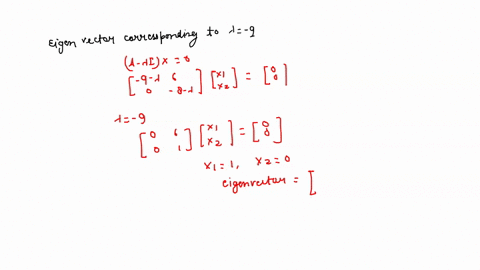 Eigen vector corresponding to λ=-9
(A-λI)x = 0
[-9-λ 6
0 -8-λ] [x1
x2] = [0
0]
λ=-9
[0 6
0 1] [x1
x2] = [0
0]
x1=1, x2=0
Eigenvector = [